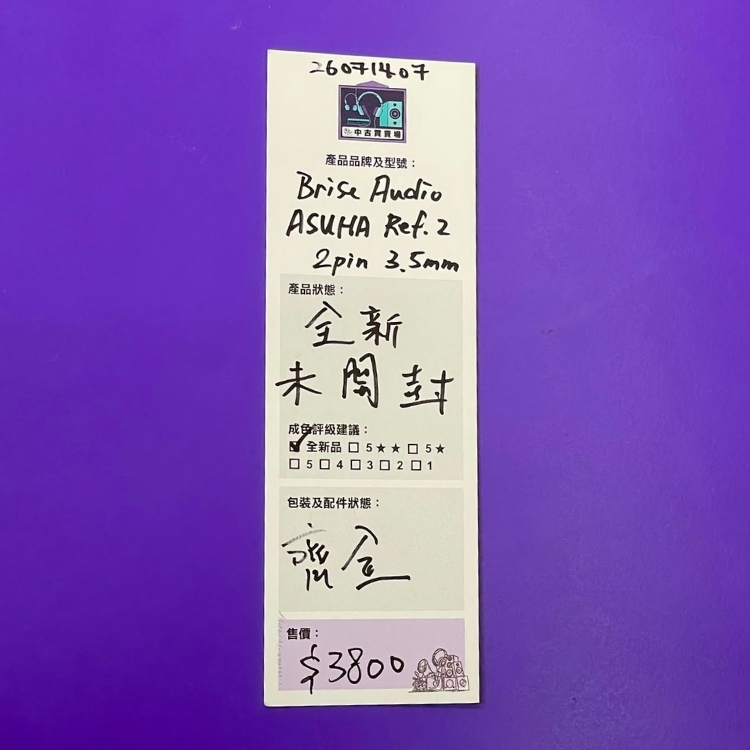 26071407
中古買賣場
產品品牌及型號：
Brise Audio
ASUHA Ref.2
2pin 3.5mm
產品狀態：
全新
未開封
成色評級建議：
☑ 全新品 □ 5★★ □ 5★
□ 5 □ 4 □ 3 □ 2 □ 1
包裝及配件狀態：
齊盒
售價：
$3800